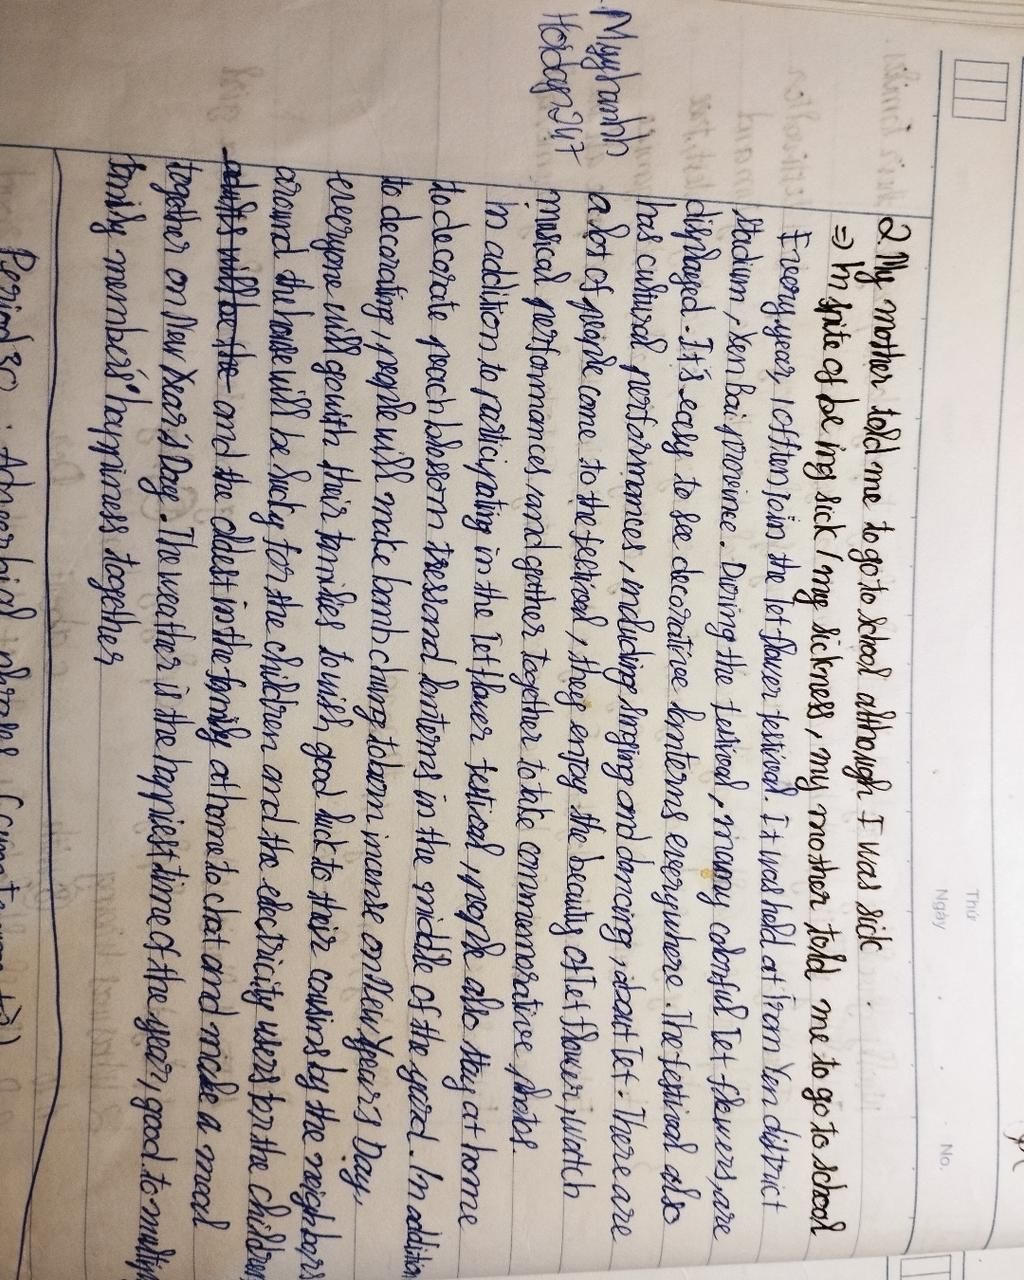 Thứ
Ngày
No.
2. My mother told me to go to school although I was sick
⇒ In spite of being sick / my sickness, my mother told me to go to school
Every year, I often join the Tet flower festival. It was held at Tran Yen district
stadium, Yen Bai province. During the festival, many colorful Tet flowers, are
displayed. It's easy to see decorative lanterns everywhere. The festival also
has cultural performances, including singing and dancing, about Tet. There are
a lot of people come to the festival, they enjoy the beauty of Tet flower, watch
musical performances, and gather together to take commemorative photos.
In addition to participating in the Tet flower festival, people also stay at home
to decorate peach blossom trees and lanterns in the middle of the yard. In addition
to decorating, people will make banh chung to burn incense on New Year's Day,
everyone will go with their families to wish good luck to their cousins by the neighbars
around the house will be lucky for the children and the electricity users for the children
adults will be the and the oldest in the family at home to chat and make a meal
together on New Year's Day. The weather is the happiest time of the year, good to multiply
family members' happiness together
Myyhanhh
Hoidap247
Period 30 : Adverbial phrases